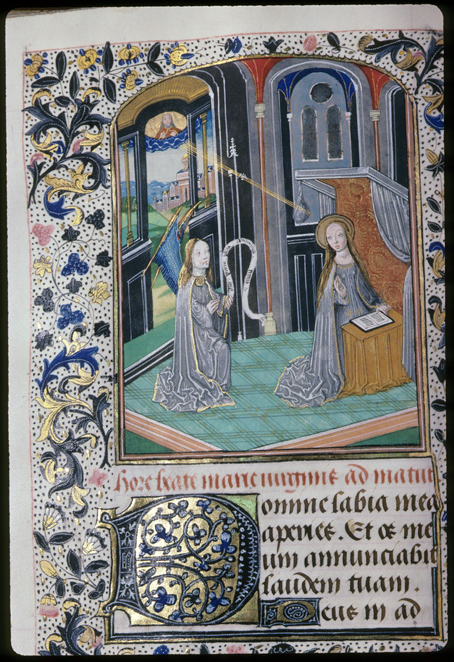 Hore beate marie virginis ad matut
Domine labia mea
aperies. Et os me
um annunciabit
laudem tuam.
Deus in ad